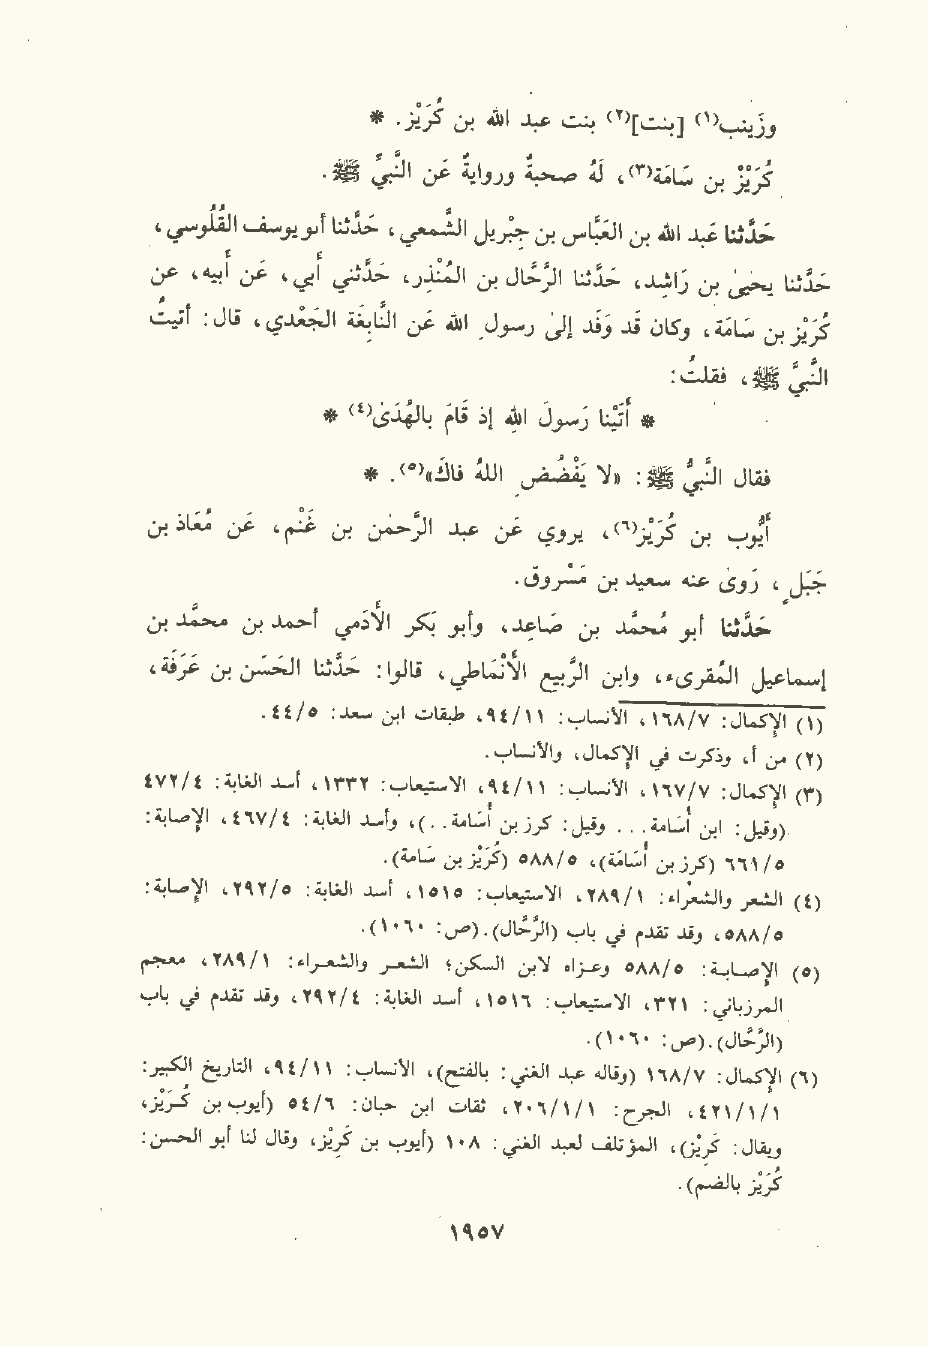 وزَينب(١) [بنت](٢) بنت عبد الله بن كُرَيْز. *
كُرَيْز بن سَامَة(٣)، لَهُ صحبةٌ وروايةٌ عَن النَّبيِّ ﷺ.
حَدَّثنا عَبد الله بن العَبَّاس بن جِبْريل الشَّمعي، حَدَّثنا أبو يوسف القُلُوسي،
حَدَّثنا يحيىٰ بن رَاشِد، حَدَّثنا الرَّحَّال بن المُنْذِر، حَدَّثني أَبي، عَن أَبيه، عن
كُرَيْز بن سَامَة، وكان قَد وَفَد إلىٰ رسولِ الله عَن النَّابِغَة الجَعْدي، قال: أتيتُ
النَّبيَّ ﷺ، فقلتُ:
* أَتَيْنا رَسولَ الله إذ قَامَ بالهُدَىٰ(٤) *
فقال النَّبيُّ ﷺ: «لا يَفْضُضِ اللهُ فاكَ»(٥). *
أيُّوب بن كُرَيْز(٦)، يروي عَن عبد الرَّحمٰن بن غَنْم، عَن مُعَاذ بن
جَبَلٍ، رَوىٰ عنه سعيد بن مَسْروق.
حَدَّثنا أبو مُحمَّد بن صَاعِد، وأبو بَكر الأَدَمي أحمد بن محمَّد بن
إسماعيل المُقرىء، وابن الرَّبيع الأَنْمَاطي، قالوا: حَدَّثنا الحَسَن بن عَرَفَة،
(١) الإِكمال: ١٦٨/٧، الأنساب: ٩٤/١١، طبقات ابن سعد: ٤٤/٥.
(٢) من أ، وذكرت في الإِكمال، والأنساب.
(٣) الإِكمال: ١٦٧/٧، الأنساب: ٩٤/١١، الاستيعاب: ١٣٣٢، أسد الغابة: ٤٧٢/٤
(وقيل: ابن أُسَامة... وقيل: كرز بن أُسَامة..)، وأسد الغابة: ٤٦٧/٤، الإِصابة:
٦٦١/٥ (كرز بن أُسَامَة)، ٥٨٨/٥ (كُرَيْز بن سَامة).
(٤) الشعر والشعراء: ٢٨٩/١، الاستيعاب: ١٥١٥، أسد الغابة: ٢٩٢/٥، الإصابة:
٥٨٨/٥، وقد تقدم في باب (الرَّحَّال).(ص: ١٠٦٠).
(٥) الإِصابة: ٥٨٨/٥ وعزاه لابن السكن؛ الشعر والشعراء: ٢٨٩/١، معجم
المرزباني: ٣٢١، الاستيعاب: ١٥١٦، أسد الغابة: ٢٩٢/٤، وقد تقدم في باب
(الرَّحَّال).(ص: ١٠٦٠).
(٦) الإِكمال: ١٦٨/٧ (وقاله عبد الغني: بالفتح)، الأنساب: ٩٤/١١، التاريخ الكبير:
٤٢١/١/١، الجرح: ٢٠٦/١/١، ثقات ابن حبان: ٥٤/٦ (أيوب بن كُرَيْز،
ويقال: كَرِيْز)، المؤتلف لعبد الغني: ١٠٨ (أيوب بن كَرِيْز، وقال لنا أبو الحسن:
كُرَيْز بالضم).
١٩٥٧